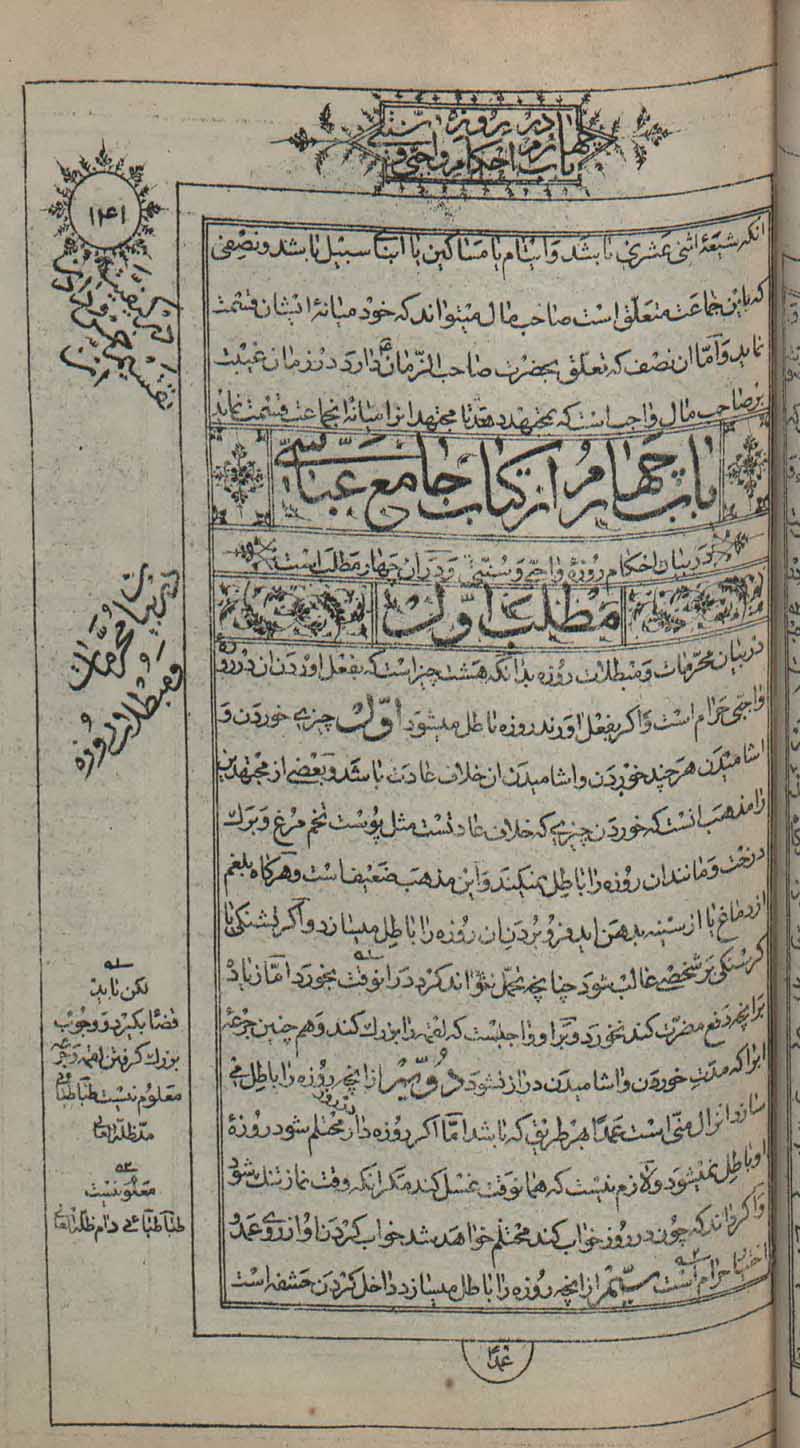 در روزه سنتی
باب چهارم احکام واجبی و
۱۴۱
آنکه شیعهٔ اثنی عشری باشد و ایتام یا مساکین یا ابناء سبیل باشد و نصفی
که باین جماعت متعلق است صاحب مال میتواند که خود میانهٔ ایشان قسمت
نماید و امّا ان نصف که تعلق بحضرت صاحب الزمان ع دارد در زمان غیبت
بر صاحب مال واجب است که بمجتهد دهد تا مجتهد انرا میانهٔ انجماعت قسمت نماید
باب چهارم از کتاب جامع عباسی
در بیان احکام روزهٔ واجبی و سنتی و در ان چهار مطلب است
مطلب اوّل
در بیان محرّمات و مبطلات روزه بدانکه هشت چیز است که بفعل اوردن ان در روزهٔ
واجبی حرام است و اکر بفعل اورند روزه باطل میشود اوّل چیزی خوردن و
اشامیدن هر چند خوردن و اشامیدن ان خلاف عادت باشد و بعضی از مجتهدین
را مذهب انست که خوردن چیزی که خلاف عادتست مثل پوست تخم مرغ و برک
درخت و مانند ان روزه را باطل نمیکند و این مذهب ضعیف است و هرکاه بلغم
از دماغ یا از سینه بدهن اید فرو بردن ان روزه را باطل میسازد و اکر تشنکی یا
کرسنکی بر شخصی غالب شود چنانچه تحمل نتواند کرد در انوقت بخورد امّا زیاد
بر انچه دفع مضرت کند نخورد و بر او واجبست که لقمه را بزرک نکند و هم چنین جرعه
ابرا که مدّت خوردن و اشامیدن دراز نشود دوّم از انچه روزه را باطل می
سازد انزال منی است عمدًا بهر طریق که باشد امّا اکر روزه دار در روز محتلم شود روزهٔ
او باطل نمیشود و لازم نیست که همانوقت غسل کند مکر انکه وقت نماز تنک شود
و اکر داند که چون در روز خواب کند محتلم خواهد شد خواب کردن او از روی عمد و
اختیار حرام است سیّم از انچه روزه را باطل میسازد داخل کردن حشفه است
لکن باید
قضا بکیرد و وجوب
بزرک کرفتن لقمه و جرعه
معلوم نیست طباطبائی
مد ظله العالی
معلوم نیست
طباطبائی دام ظله العالی
عمدًا